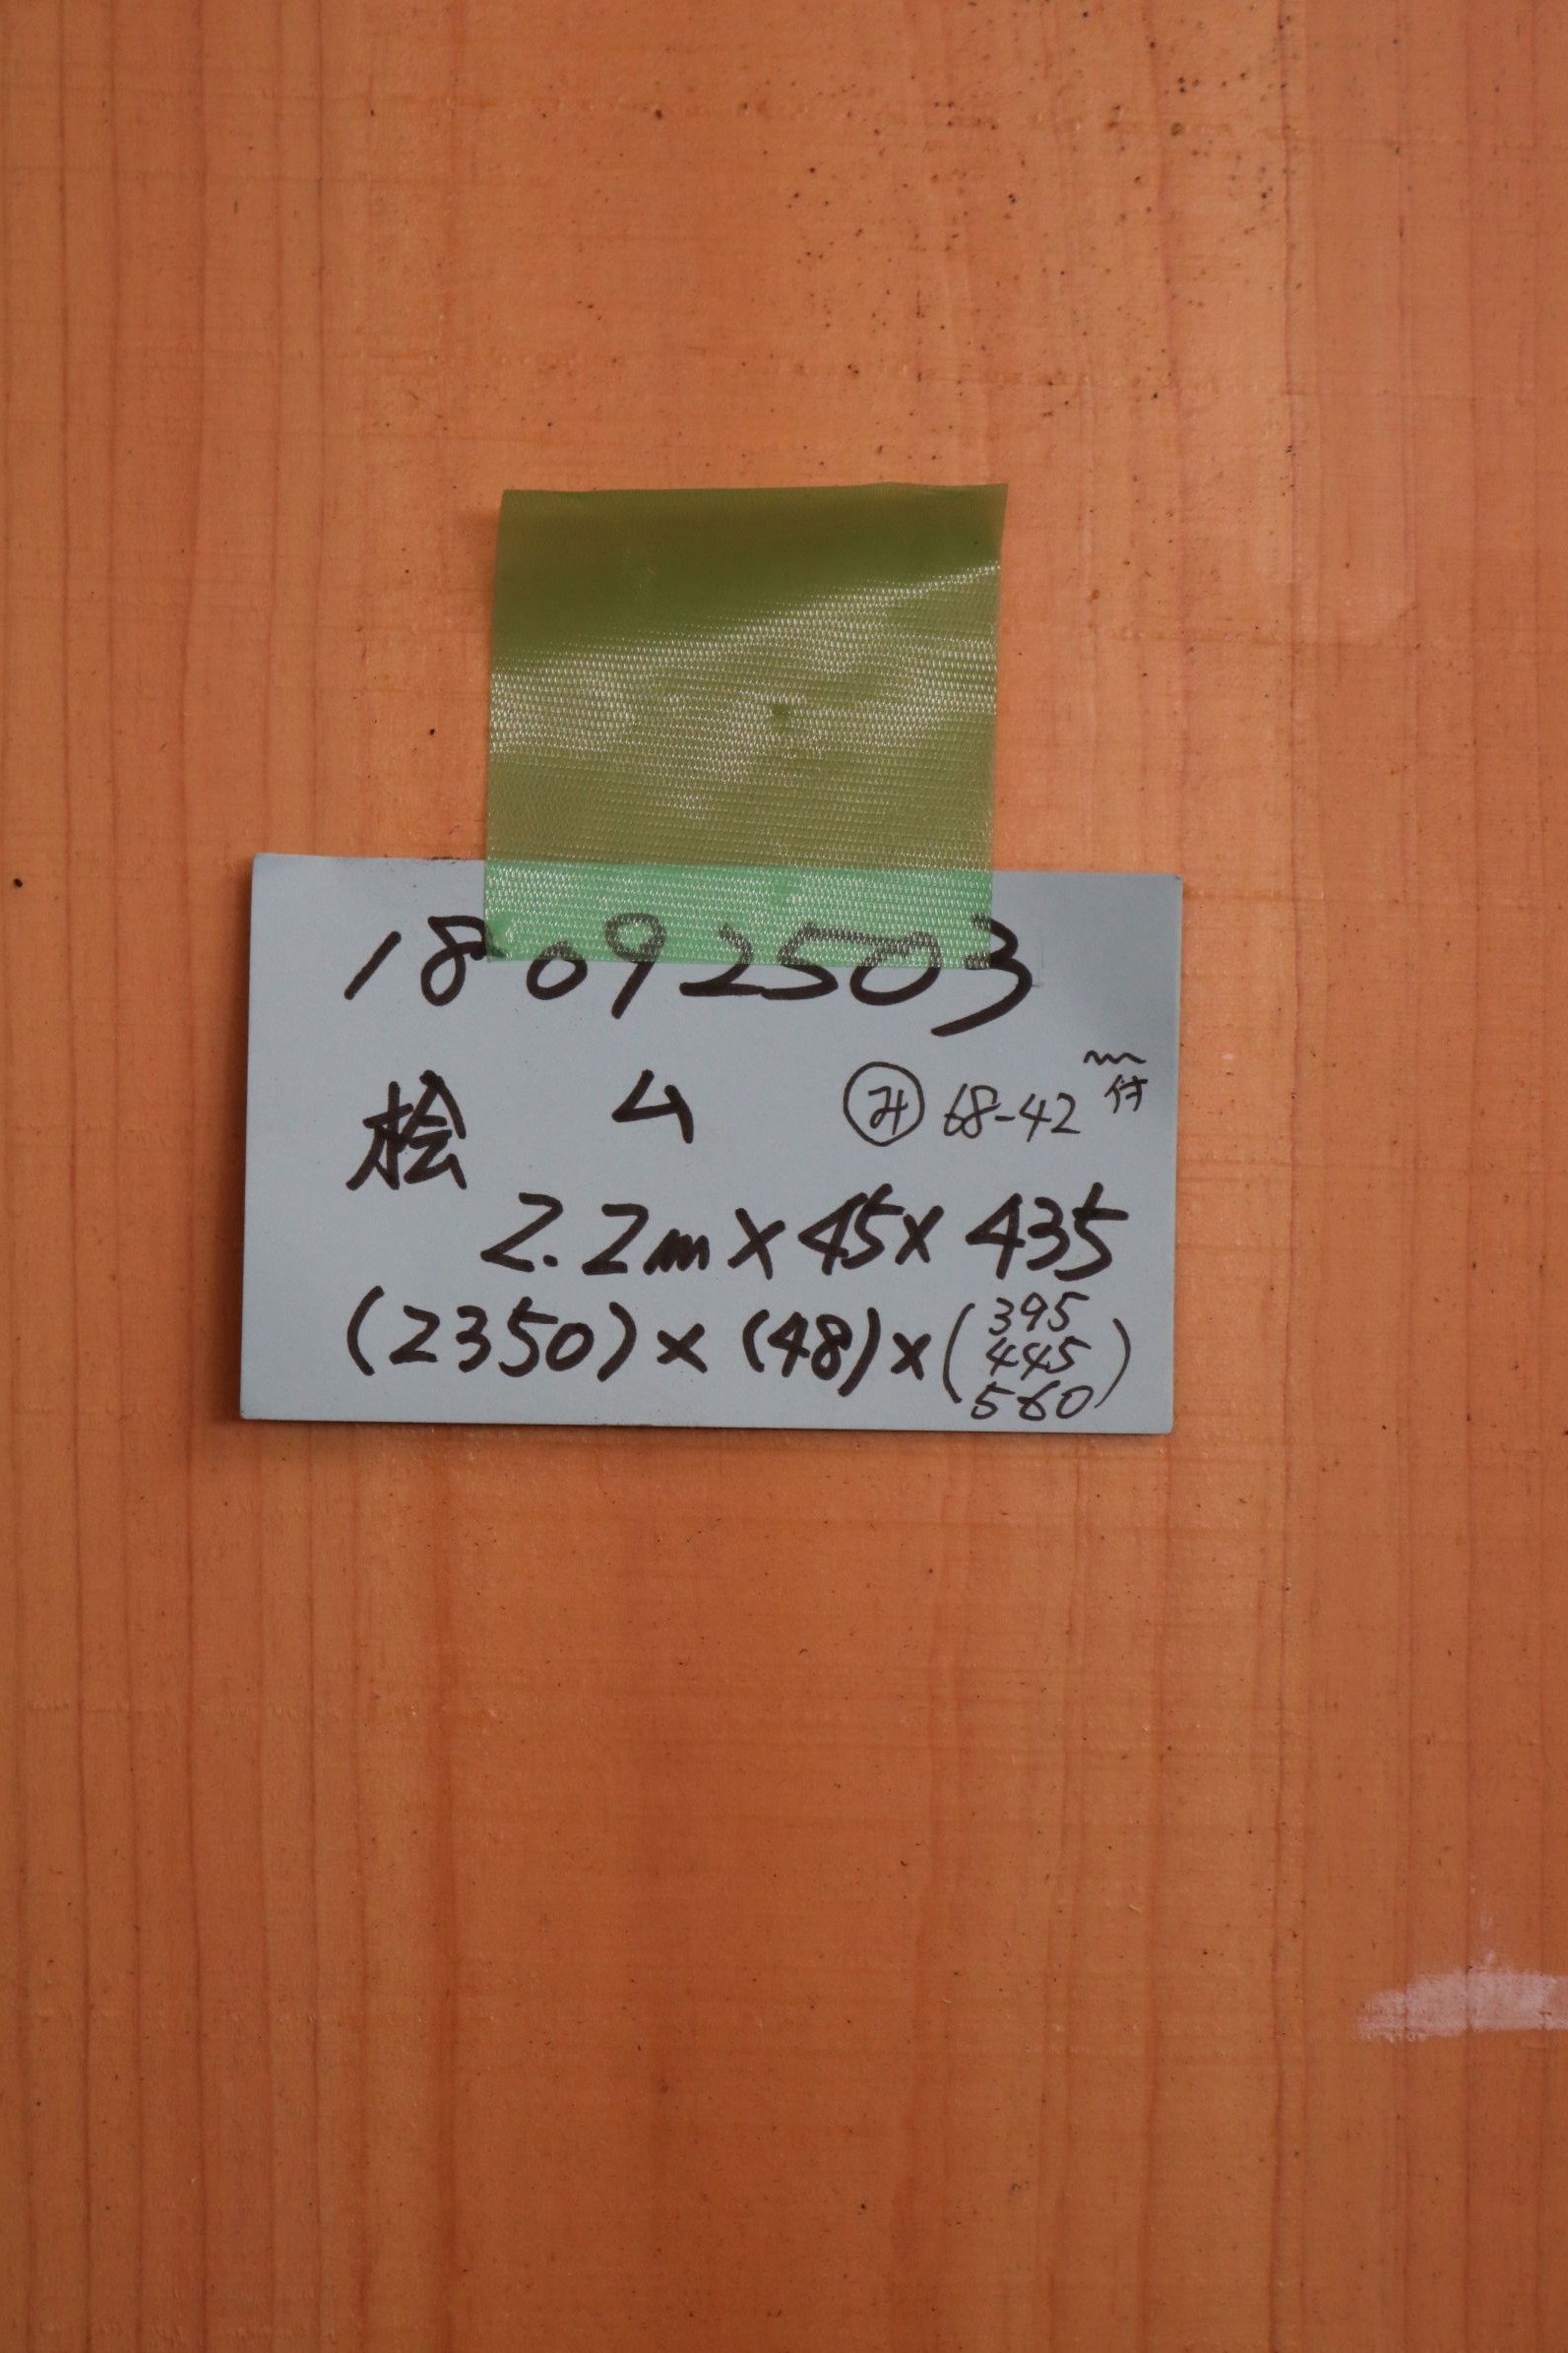 18092503
桧 ム ㋯ 68-42 〜付
2.2m×45×435
(2350)×(48)×(395
445
560)